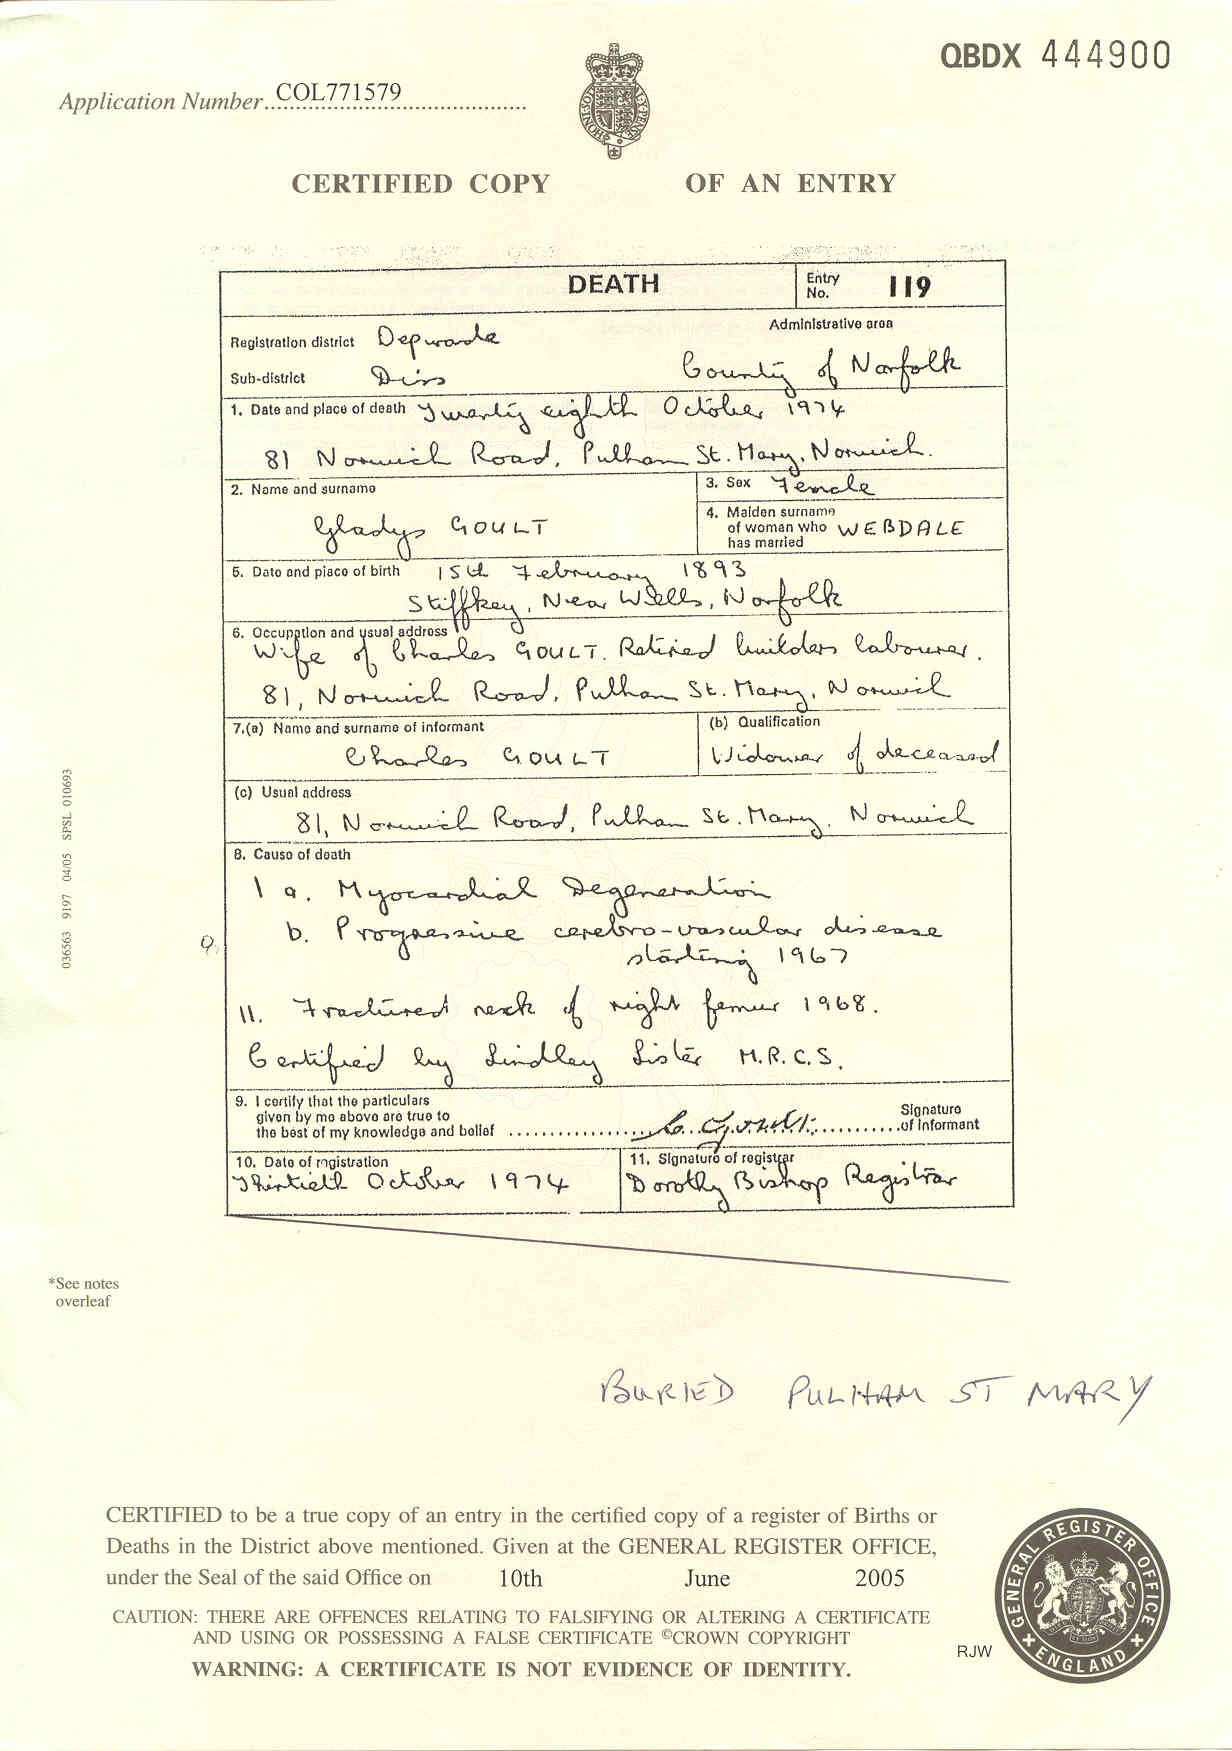 QBDX 444900
Application Number COL771579
HONI·SOI QUI MAL·Y·PENSE
CERTIFIED COPY OF AN ENTRY
DEATH Entry No. 119
Administrative area
Registration district Depwade
County of Norfolk
Sub-district Diss
1. Date and place of death Twenty eighth October 1974
81 Norwich Road, Pulham St. Mary, Norwich.
2. Name and surname
Gladys GOULT
3. Sex Female
4. Maiden surname
of woman who WEBDALE
has married
5. Date and place of birth 15th February 1893
Stiffkey, Near Wells, Norfolk
6. Occupation and usual address
Wife of Charles GOULT. Retired builders labourer.
81, Norwich Road, Pulham St. Mary, Norwich
7.(a) Name and surname of informant
Charles GOULT
(b) Qualification
Widower of deceased
(c) Usual address
81, Norwich Road, Pulham St. Mary, Norwich
8. Cause of death
1 a. Myocardial Degeneration
b. Progressive cerebro-vascular disease
starting 1967
11. Fractured neck of right femur 1968.
Certified by Lindley Lister M.R.C.S.
9. I certify that the particulars
given by me above are true to
the best of my knowledge and belief C. Goult. Signature
of informant
10. Date of registration
Thirtieth October 1974
11. Signature of registrar
Dorothy Bishop Registrar
036563 9197 04/05 SPSL 010693
*See notes
overleaf
BURIED PULHAM ST MARY
CERTIFIED to be a true copy of an entry in the certified copy of a register of Births or
Deaths in the District above mentioned. Given at the GENERAL REGISTER OFFICE,
under the Seal of the said Office on 10th June 2005
CAUTION: THERE ARE OFFENCES RELATING TO FALSIFYING OR ALTERING A CERTIFICATE
AND USING OR POSSESSING A FALSE CERTIFICATE ©CROWN COPYRIGHT
WARNING: A CERTIFICATE IS NOT EVIDENCE OF IDENTITY.
RJW
GENERAL REGISTER OFFICE
ENGLAND